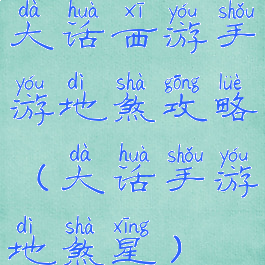 dà huà xī yóu shǒu
大话西游手
yóu dì shà gōng lüè
游地煞攻略
dà huà shǒu yóu
（大话手游
dì shà xīng
地煞星）